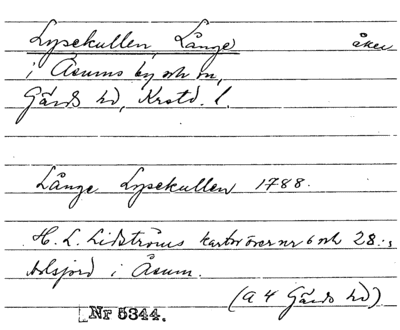 Lysekullen, Långe åker
i Åsums by och sn,
Gärds hd, Krstd. l.
Långe Lysekullen 1788.
H. L. Lidströms kartor över nr 6 och 28:s
bolsjord i Åsum.
(A 4 Gärds hd)
Nr 5344.